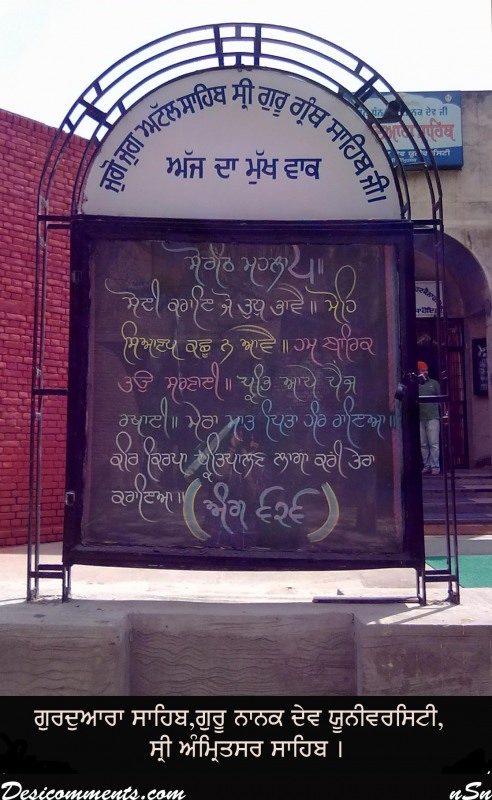 ਜੁਗੋ ਜੁਗ ਅਟੱਲ ਸਾਹਿਬ ਸ੍ਰੀ ਗੁਰੂ ਗ੍ਰੰਥ ਸਾਹਿਬ ਜੀ।
ਅੱਜ ਦਾ ਮੁੱਖ ਵਾਕ
ਨਕ ਦੇਵ ਜੀ
ਸੋਰਠਿ ਮਹਲਾ ੫॥
ਸੋਈ ਕਰਾਇ ਜੋ ਤੁਧੁ ਭਾਵੈ॥ ਮੋਹਿ
ਸਿਆਣਪ ਕਛੂ ਨ ਆਵੈ॥ ਹਮ ਬਾਰਿਕ
ਤਉ ਸਰਣਾਈ॥ ਪ੍ਰਭਿ ਆਪੇ ਪੈਜ
ਰਖਾਈ॥ ਮੇਰਾ ਮਾਤ ਪਿਤਾ ਹਰਿ ਰਾਇਆ॥
ਕਰਿ ਕਿਰਪਾ ਪ੍ਰਤਿਪਾਲਣ ਲਾਗਾ ਕਰੀ ਤੇਰਾ
ਕਰਾਇਆ॥ (ਅੰਗ ੬੨੬)
ਗੁਰਦੁਆਰਾ ਸਾਹਿਬ,ਗੁਰੂ ਨਾਨਕ ਦੇਵ ਯੂਨੀਵਰਸਿਟੀ,
ਸ੍ਰੀ ਅੰਮ੍ਰਿਤਸਰ ਸਾਹਿਬ ।
Desicomments.com
nSn